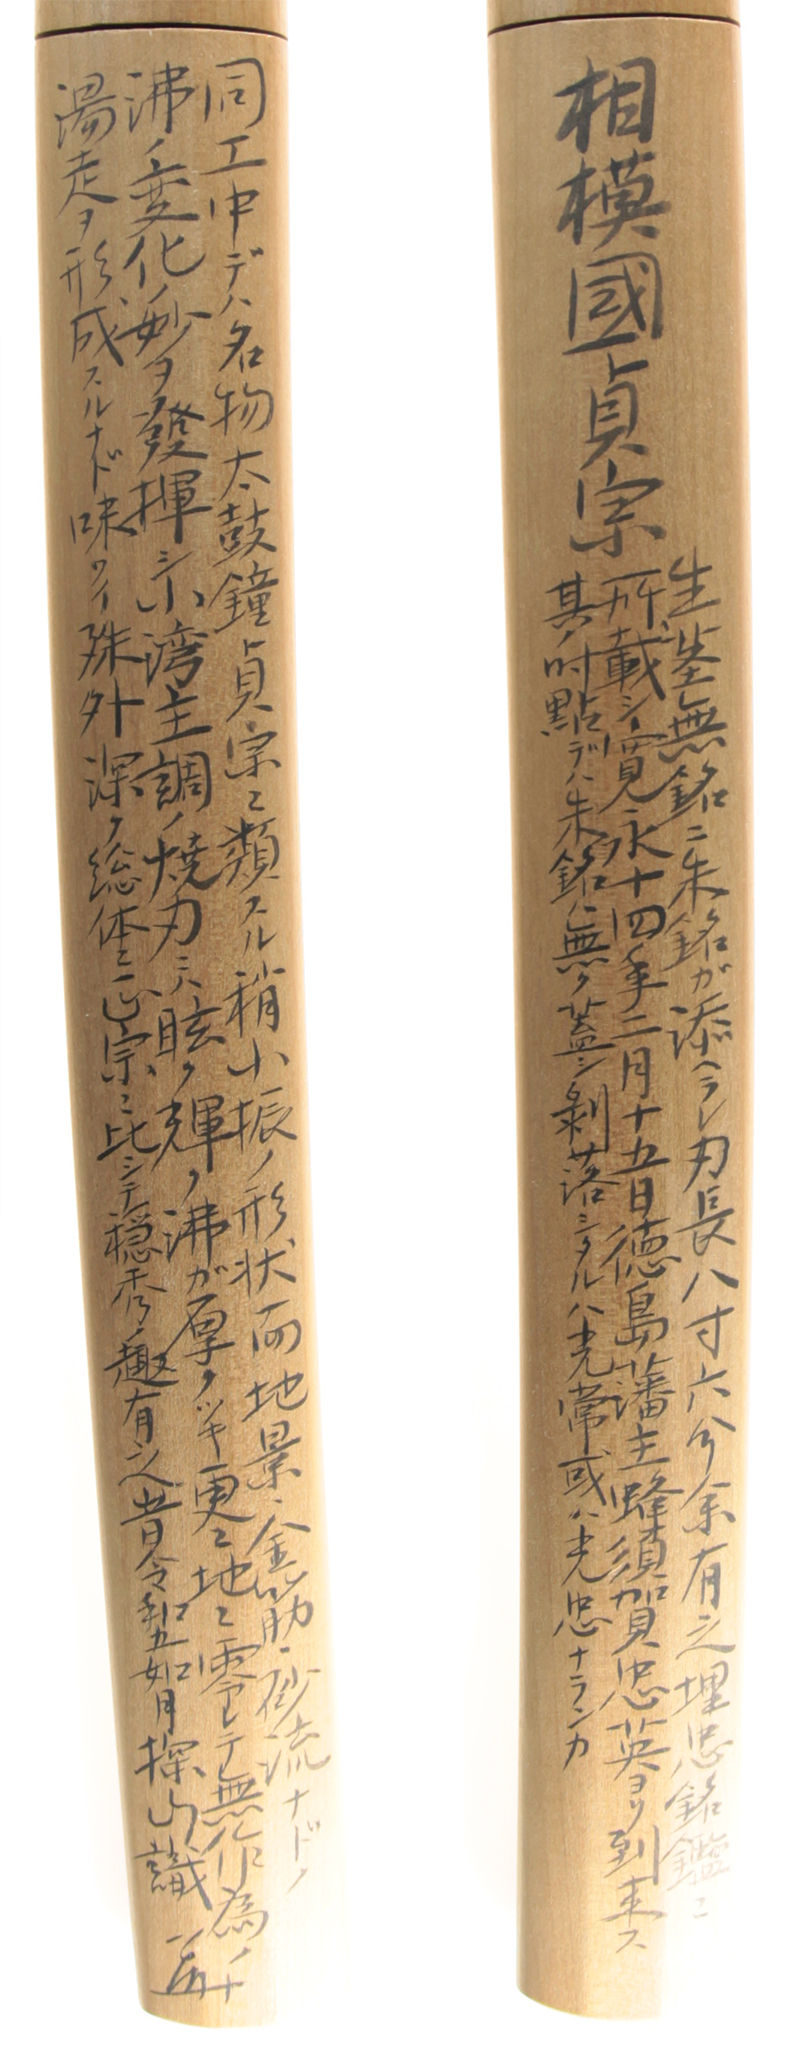 相模國貞宗
生茎無銘ニ朱銘が添ヘラレ刃長八寸六分余有之埋忠銘鑑ニ
所載シ寛永十四年二月十五日徳島藩主蜂須賀忠英ヨリ到来ス
其ノ時點デハ朱銘ハ無ク蓋シ剝落シタルハ光常或ハ光忠ナランカ
同工中デハ名物太鼓鐘貞宗ニ類スル稍小振ノ形状而地景、金筋、砂流ナドノ
沸ノ変化ノ妙ヲ發揮シ小湾主調ノ焼刃ニハ眩ク輝ク沸が厚クツキ更ニ地ニ零レテ無作為ノ
湯走ヲ形成スルナド味ワイ殊外深ク総体ニ正宗ニ比シテ穏秀ノ趣有之
昔令和五如月探山識